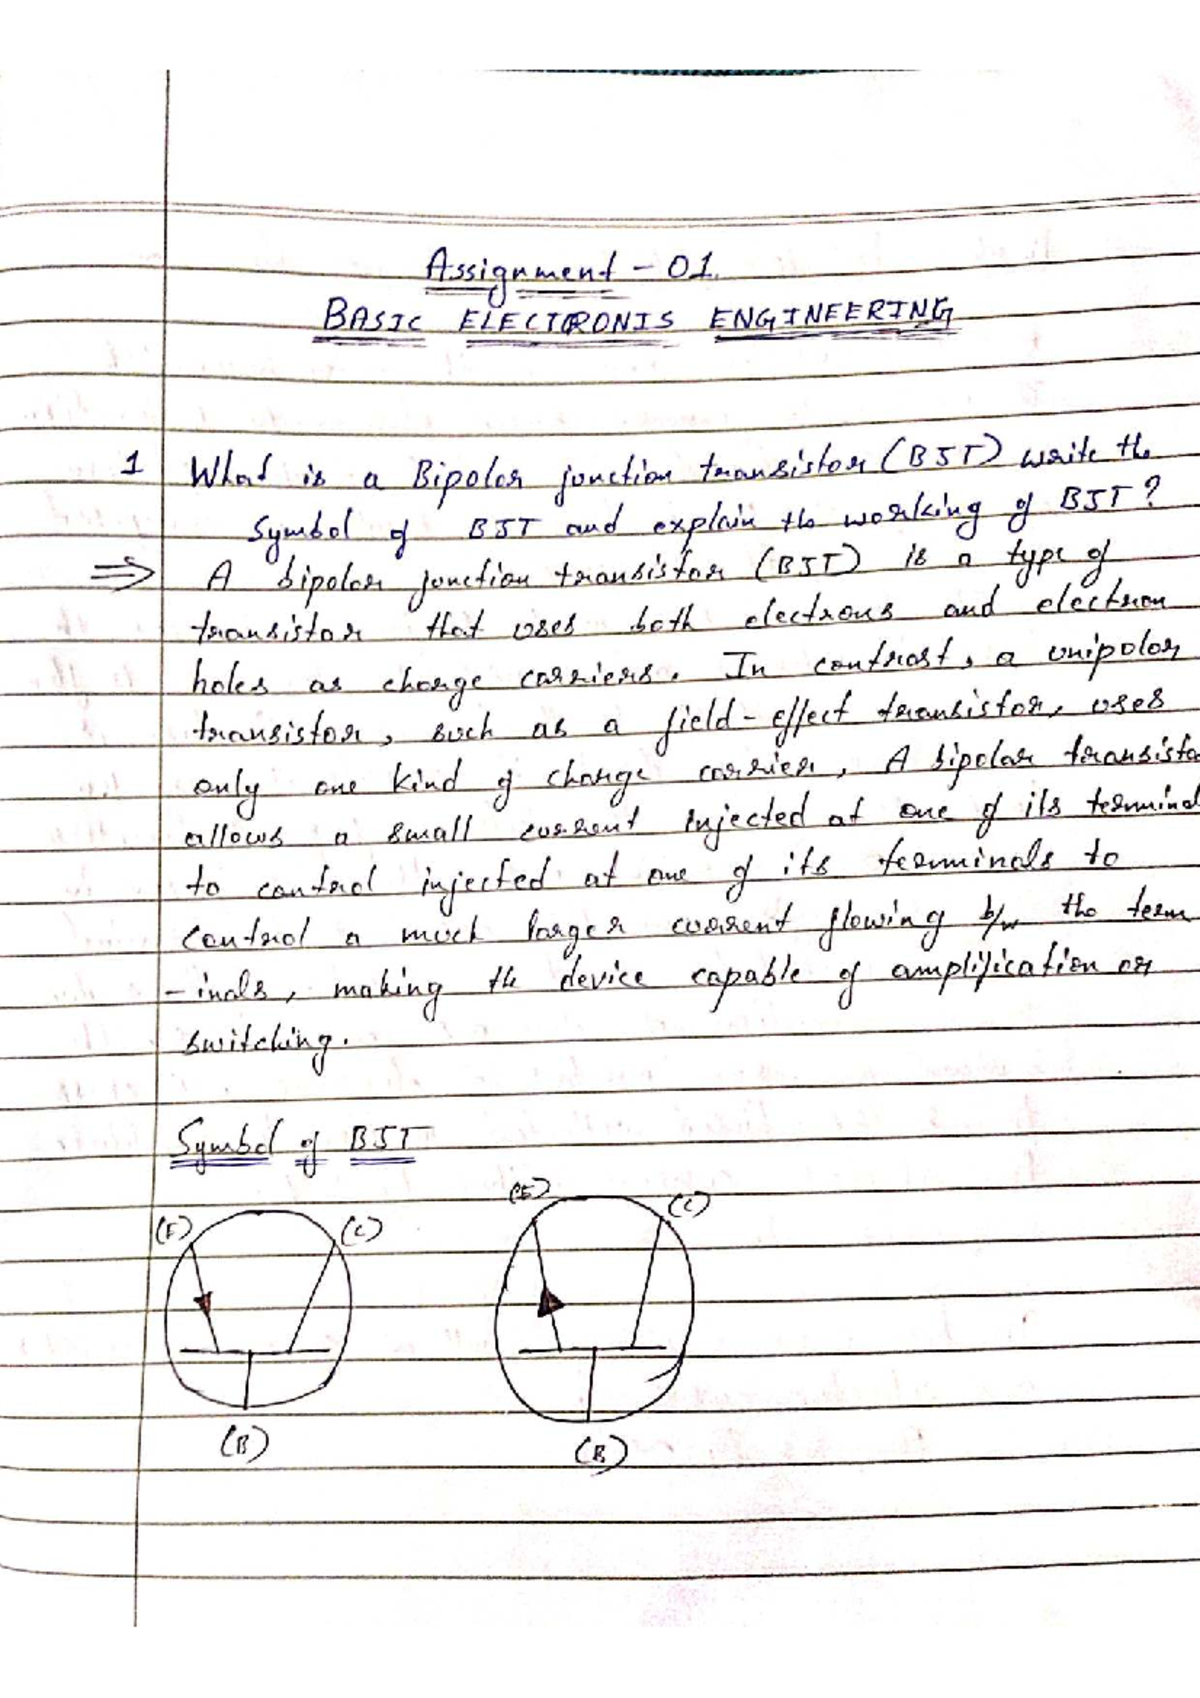 Assignment - 01.
BASIC ELECTRONIS ENGINEERING
1 What is a Bipolar junction transistor (BJT) write the
Symbol of BJT and explain the working of BJT?
⇒ A bipolar junction transistor (BJT) is a type of
transistor that uses both electrons and electron
holes as charge carriers. In contrast, a unipolar
transistor, such as a field-effect transistor, uses
only one kind of charge carrier, A bipolar transisto
allows a small current injected at one of its terminal
to control injected at one of its terminals to
control a much larger current flowing b/w the term
-inals, making the device capable of amplification or
switching.
Symbol of BJT
(E) (C) (E) (C)
(B) (B)